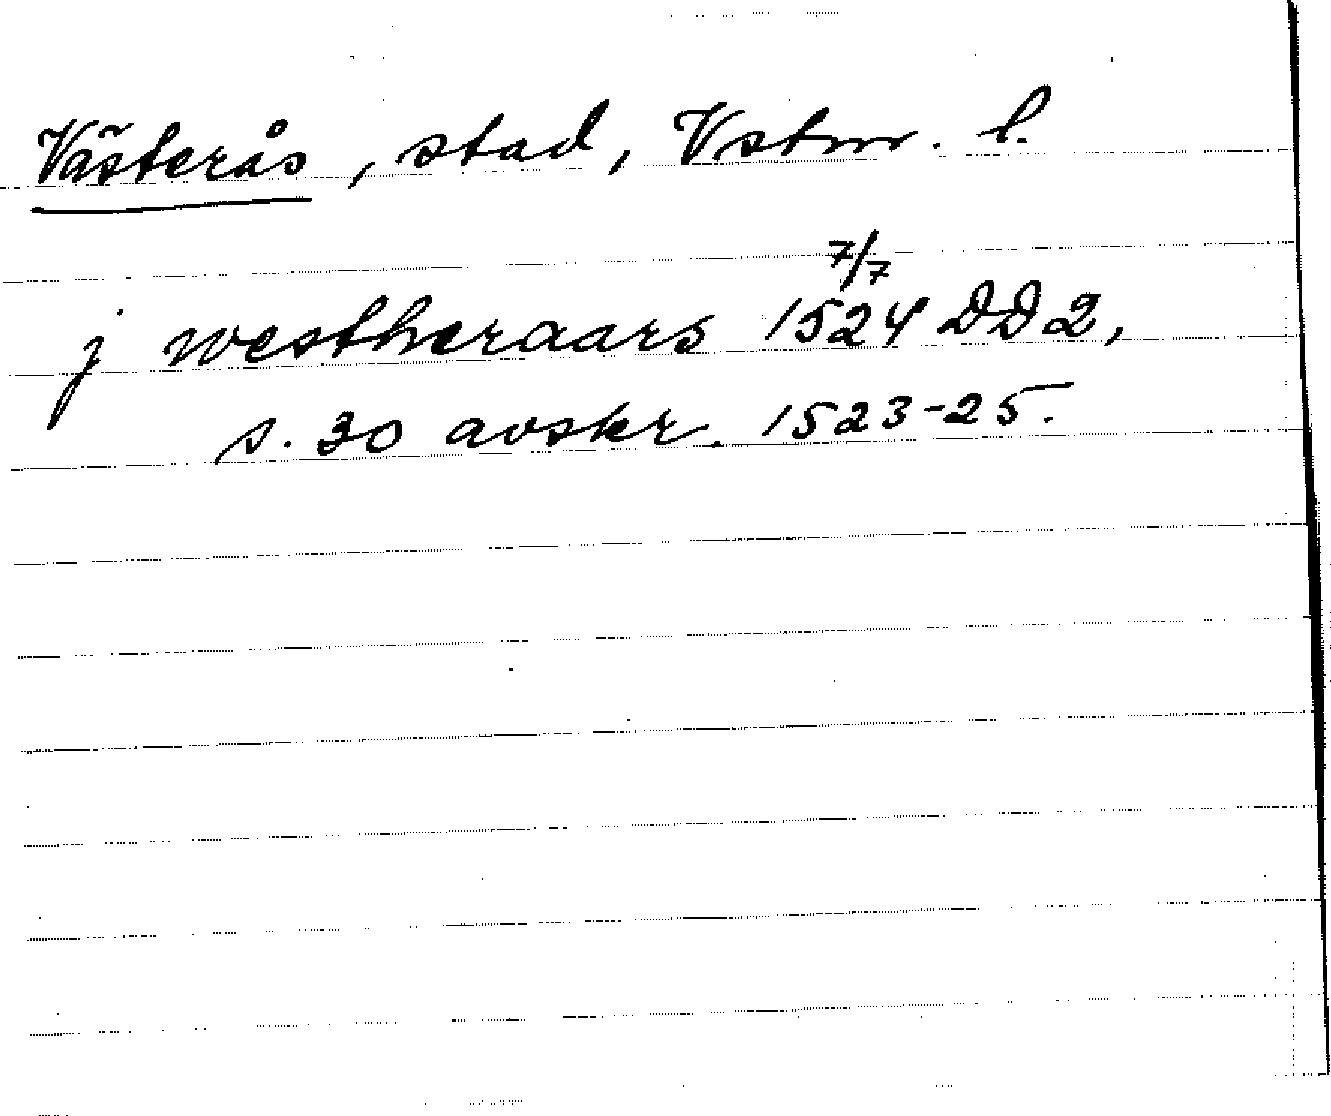 Västerås, stad, Vstm. l.
j westheraars 7/7 1524 DD2,
s. 30 avskr. 1523-25.